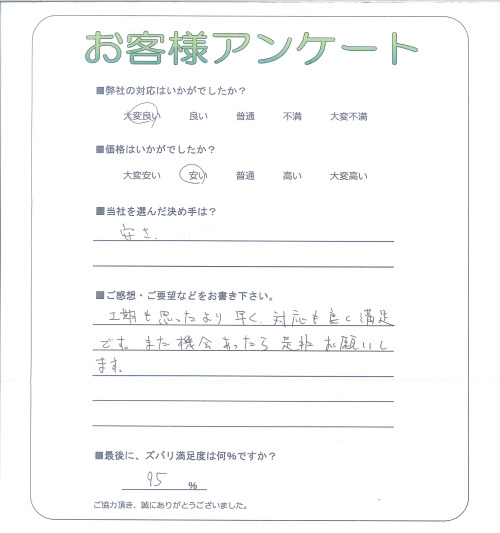 お客様アンケート
■弊社の対応はいかがでしたか？
大変良い 良い 普通 不満 大変不満
■価格はいかがでしたか？
大変安い 安い 普通 高い 大変高い
■当社を選んだ決め手は？
安さ.
■ご感想・ご要望などをお書き下さい。
工期も思ったより早く、対応も良く満足
です。また機会あったら是非お願いし
ます。
■最後に、ズバリ満足度は何%ですか？
95 %
ご協力頂き、誠にありがとうございました。